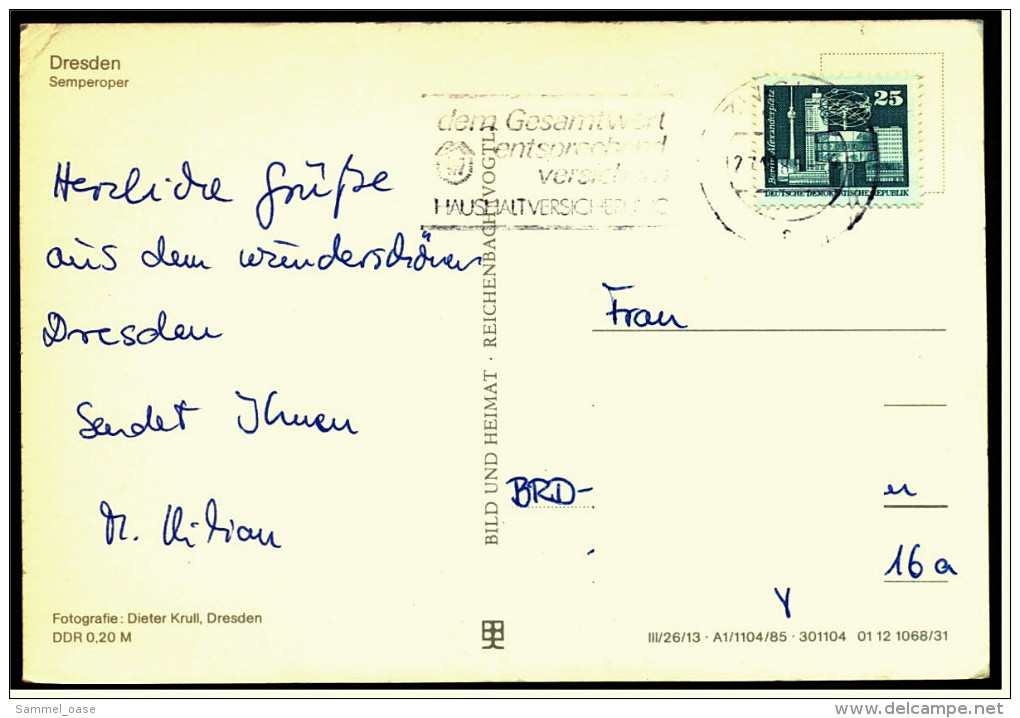 Dresden
Semperoper
dem Gesamtwert
entsprechend
versichern
HAUSHALTVERSICHERUNG
Berlin-Alexanderplatz
25
DEUTSCHE DEMOKRATISCHE REPUBLIK
Herzliche Grüße
aus dem wunderschönen
Dresden
Sendet Ihnen
Kilian
BILD UND HEIMAT · REICHENBACH (VOGTL)
Frau
BRD-
16a
Fotografie: Dieter Krull, Dresden
DDR 0,20 M
III/26/13 · A1/1104/85 · 301104 01 12 1068/31
Sammel_oase
www.delcampe.net